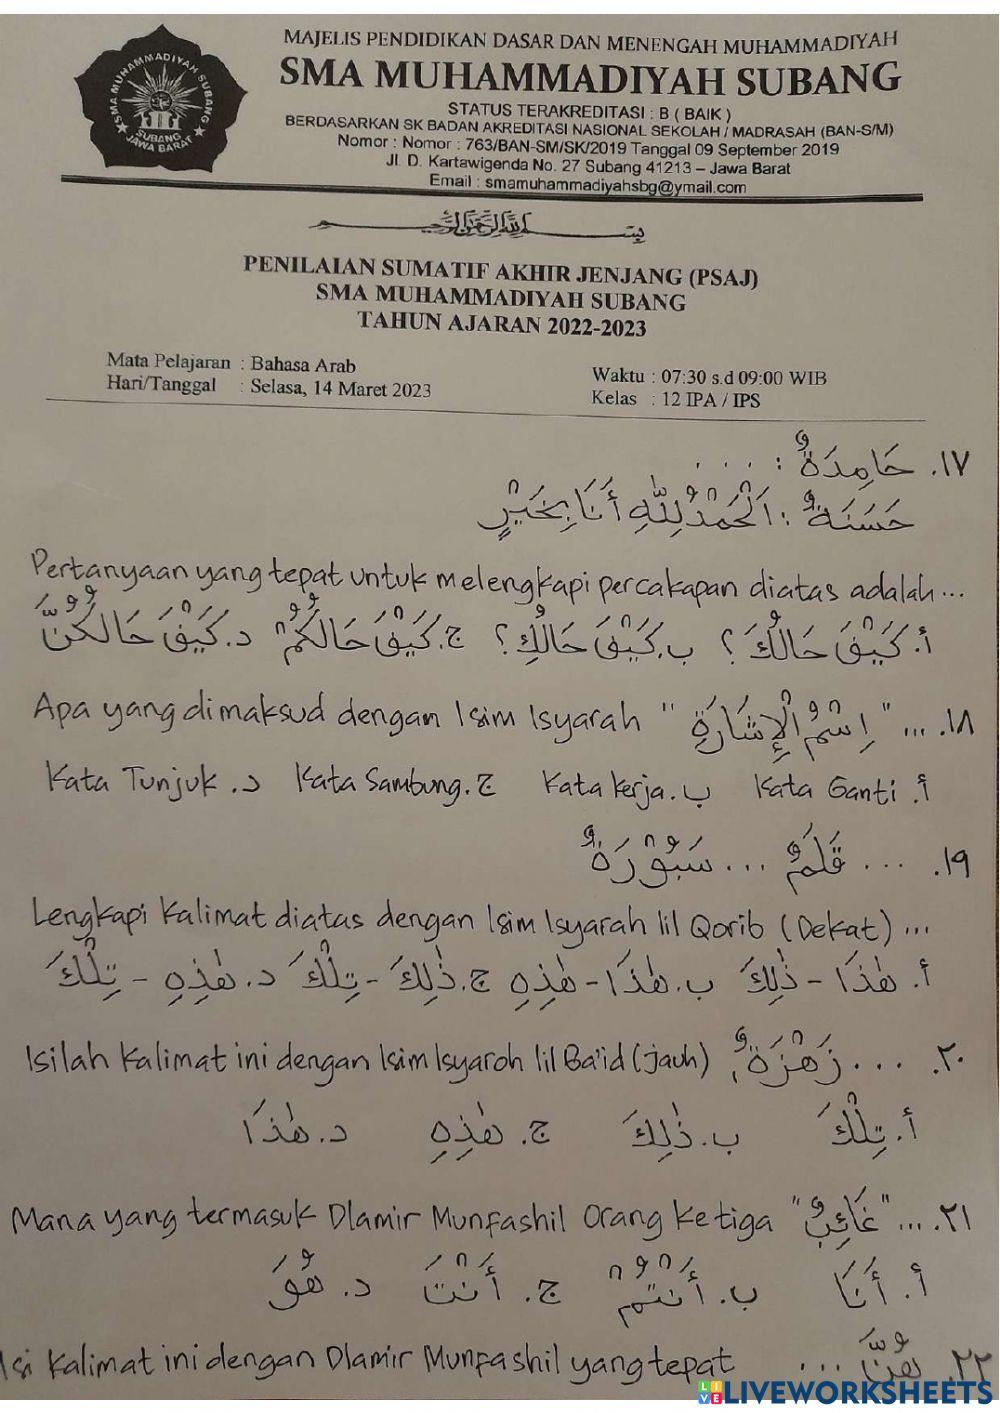 SMA MUHAMMADIYAH SUBANG
SUBANG
JAWA BARAT
MAJELIS PENDIDIKAN DASAR DAN MENENGAH MUHAMMADIYAH
SMA MUHAMMADIYAH SUBANG
STATUS TERAKREDITASI : B ( BAIK )
BERDASARKAN SK BADAN AKREDITASI NASIONAL SEKOLAH / MADRASAH (BAN-S/M)
Nomor : Nomor : 763/BAN-SM/SK/2019 Tanggal 09 September 2019
Jl. D. Kartawigenda No. 27 Subang 41213 – Jawa Barat
Email : smamuhammadiyahsbg@ymail.com
بِسْمِ اللَّهِ الرَّحْمَنِ الرَّحِيمِ
PENILAIAN SUMATIF AKHIR JENJANG (PSAJ)
SMA MUHAMMADIYAH SUBANG
TAHUN AJARAN 2022-2023
Mata Pelajaran : Bahasa Arab
Hari/Tanggal : Selasa, 14 Maret 2023
Waktu : 07:30 s.d 09:00 WIB
Kelas : 12 IPA / IPS
١٧. حَامِدَةٌ : . . . .
حَسَنَةٌ : اَلْحَمْدُ لِلّٰهِ أَنَا بِخَيْرٍ
Pertanyaan yang tepat untuk melengkapi percakapan diatas adalah...
أ. كَيْفَ حَالُكَ ؟ ب. كَيْفَ حَالُكِ ؟ ج. كَيْفَ حَالُكُمْ د. كَيْفَ حَالُكُنَّ
١٨. ... Apa yang dimaksud dengan Isim Isyarah "اِسْمُ الْإِشَارَةِ"
أ. Kata Ganti ب. Kata kerja ج. Kata Sambung د. Kata Tunjuk
١٩. ... قَلَمٌ ... سَبُّوْرَةٌ
Lengkapi Kalimat diatas dengan Isim Isyarah lil Qorib (Dekat) ...
أ. هٰذَا - ذٰلِكَ ب. هٰذَا - هٰذِهِ ج. ذٰلِكَ - تِلْكَ د. هٰذِهِ - تِلْكَ
٢٠. ... زَهْرَةٌ, Isilah Kalimat ini dengan Isim Isyaroh lil Ba'id (jauh)
أ. تِلْكَ ب. ذٰلِكَ ج. هٰذِهِ د. هٰذَا
٢١. ... Mana yang termasuk Dlamir Munfashil Orang Ketiga "غَائِبٌ"
أ. أَنَا ب. أَنْتُمْ ج. أَنْتَ د. هُوَ
٢٢. هُنَّ .... Isi Kalimat ini dengan Dlamir Munfashil yang tepat
LIVEWORKSHEETS